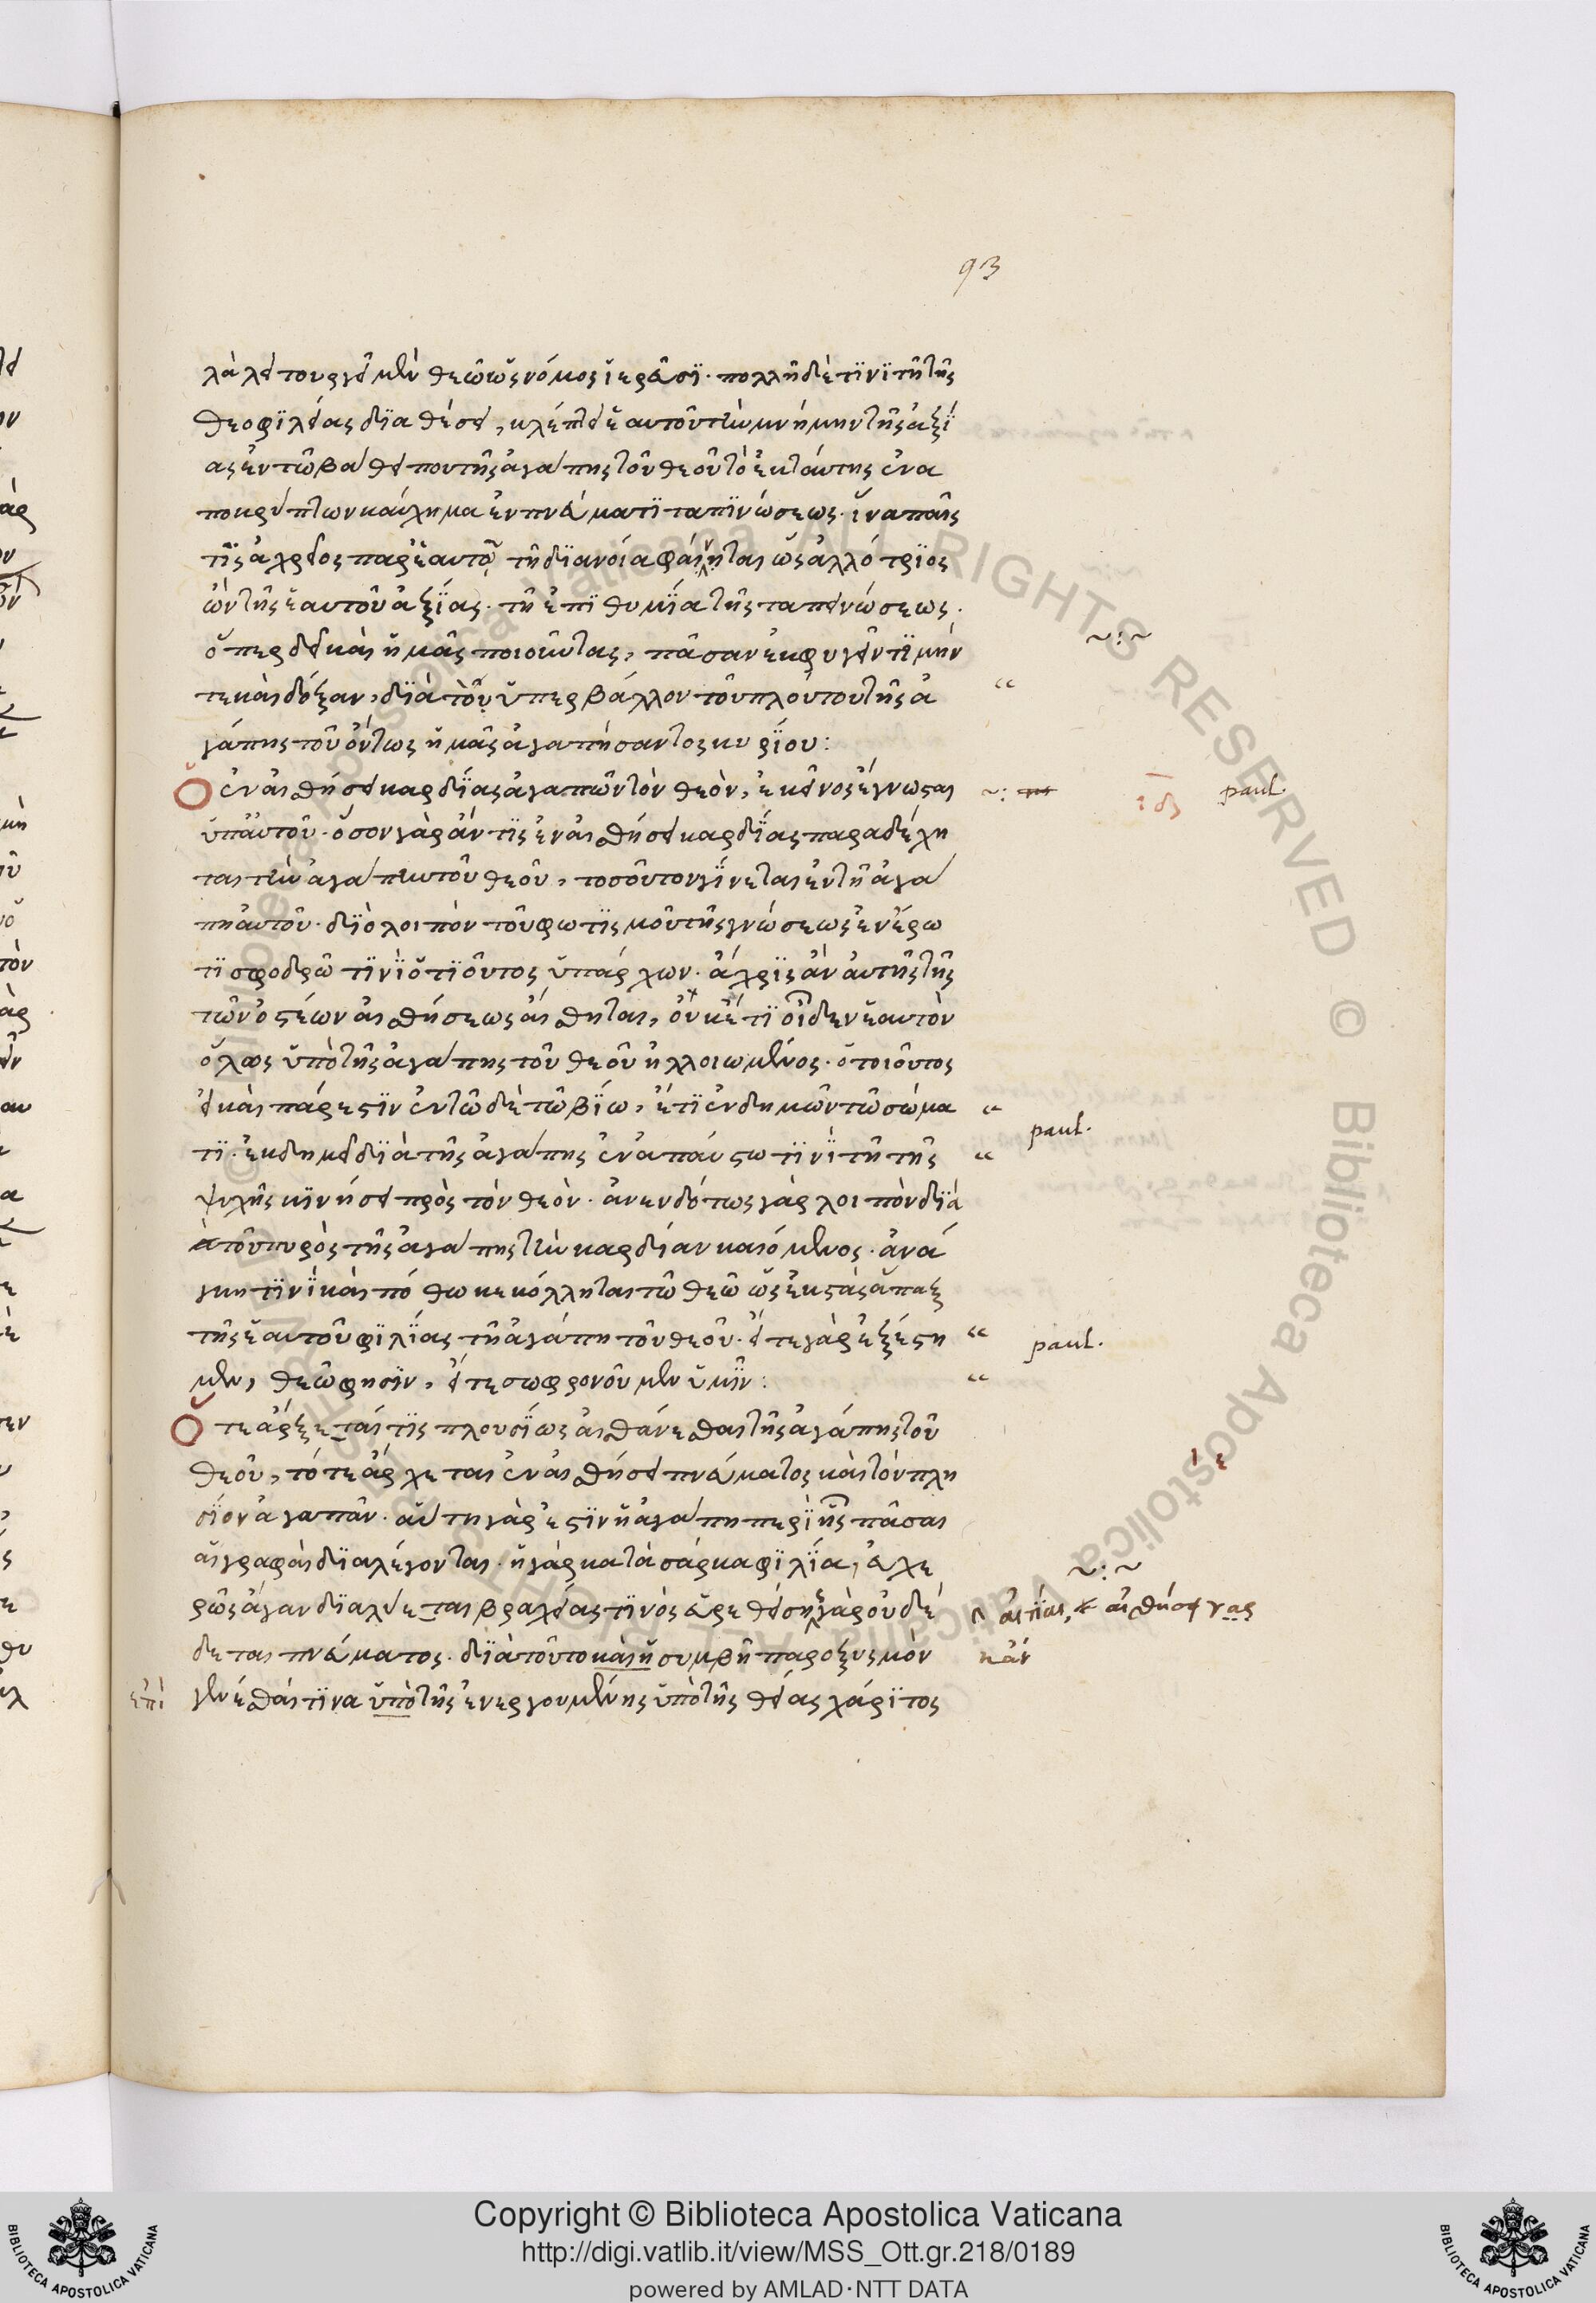 93
λὰ λειτουργεῖ μὲν θεῶ ὡς νόμος ἱερεῦσι· πολλῆ δέ τινι τῆ τῆς
θεοφιλείας διαθέσει, κλέπτει ἑαυτοῦ τὴν μνήμην τῆς ἀξί
ας ἐν τῶ βάθει που τῆς ἀγάπης τοῦ θεοῦ τὸ ἐκ ταύτης ἐνα
ποκρύπτων καύχημα ἐν πνεύματι ταπινώσεως· ἵνα παῖς
τις ἀχρεῖος παρ' ἑαυτοῦ τῆ διανοία φαίνηται ὡς ἀλλότριος
ὢν τῆς ἑαυτοῦ ἀξίας· τῆ ἐπιθυμία τῆς ταπεινώσεως·
ὅπερ δεῖ καὶ ἡμᾶς ποιοῦντας, πᾶσαν ἐκφυγεῖν τιμήν
τε καὶ δόξαν, διὰ τὸ ὑπερβάλλον τοῦ πλούτου τῆς ἀ
γάπης τοῦ ὄντως ἡμᾶς ἀγαπήσαντος κυρίου:
Ὁ ἐν αἰσθήσει καρδίας ἀγαπῶν τὸν θεὸν, ἐκεῖνος ἔγνωσται
ὑπ' αὐτοῦ· ὅσον γὰρ ἄν τις ἐν αἰσθήσει καρδίας παραδέχη
ται τὴν ἀγάπην τοῦ θεοῦ, τοσοῦτον γίνεται ἐν τῆ ἀγά
πη αὐτοῦ· διὸ λοιπὸν τοῦ φωτισμοῦ τῆς γνώσεως ἐν ἔρω
τι σφοδρῶ τινὶ ὁ τιοῦτος ὑπάρχων· ἄχρις ἂν αὐτῆς τῆς
τῶν ὀστέων αἰσθήσεως αἴσθηται, οὐκέτι οἶδεν ἑαυτὸν
ὅλως ὑπὸ τῆς ἀγάπης τοῦ θεοῦ ἠλλοιωμένος· ὁ τοιοῦτος
εἰ καὶ πάρεστιν ἐν τῶδε τῶ βίω, ἔτι ἐνδημῶν τῶ σώμα
τι· ἐκδημεῖ διὰ τῆς ἀγάπης ἐν ἀπαύστω τινὶ τῆ τῆς
ψυχῆς κινήσει πρὸς τὸν θεὸν· ἀνενδότως γὰρ λοιπὸν διὰ
τοῦ πυρὸς τῆς ἀγάπης τὴν καρδίαν καιόμενος· ἀνά
γκη τινὶ καὶ πόθω κεκόλληται τῶ θεῶ ὡς ἐκστὰς ἅπαξ
τῆς ἑαυτοῦ φιλίας τῆ ἀγάπη τοῦ θεοῦ· εἴτε γὰρ ἐξέστη
μεν, θεῶ φησὶν, εἴτε σωφρονοῦμεν ὑμῖν:
Ὅτε ἄρξεταί τις πλουσίως αἰσθάνεσθαι τῆς ἀγάπης τοῦ
θεοῦ, τότε ἄρχεται ἐν αἰσθήσει πνεύματος καὶ τὸν πλη
σίον ἀγαπᾶν· αὕτη γάρ ἐστιν ἡ ἀγάπη περὶ ἧς πᾶσαι
αἱ γραφαὶ διαλέγονται· ἡ γὰρ κατὰ σάρκα φιλία, εὐχε
ρῶς ἄγαν διαλύεται βραχείας τινὸς εὑρεθείσης γὰρ οὐ δέ
δεται πνεύματος· διὰ τοῦτο καὶ ἢ συμβῆ παροξυσμὸν
γενέσθαι τινα ὑπὸ τῆς ἐνεργουμένης ὑπὸ τῆς θείας χάριτος
~:~
~:
ιδ
paul.
paul.
paul.
ιε
~:~
αἰτίας, αἰσθήσει γὰρ
κἂν
ἐπὶ
Copyright © Biblioteca Apostolica Vaticana
http://digi.vatlib.it/view/MSS_Ott.gr.218/0189
powered by AMLAD·NTT DATA